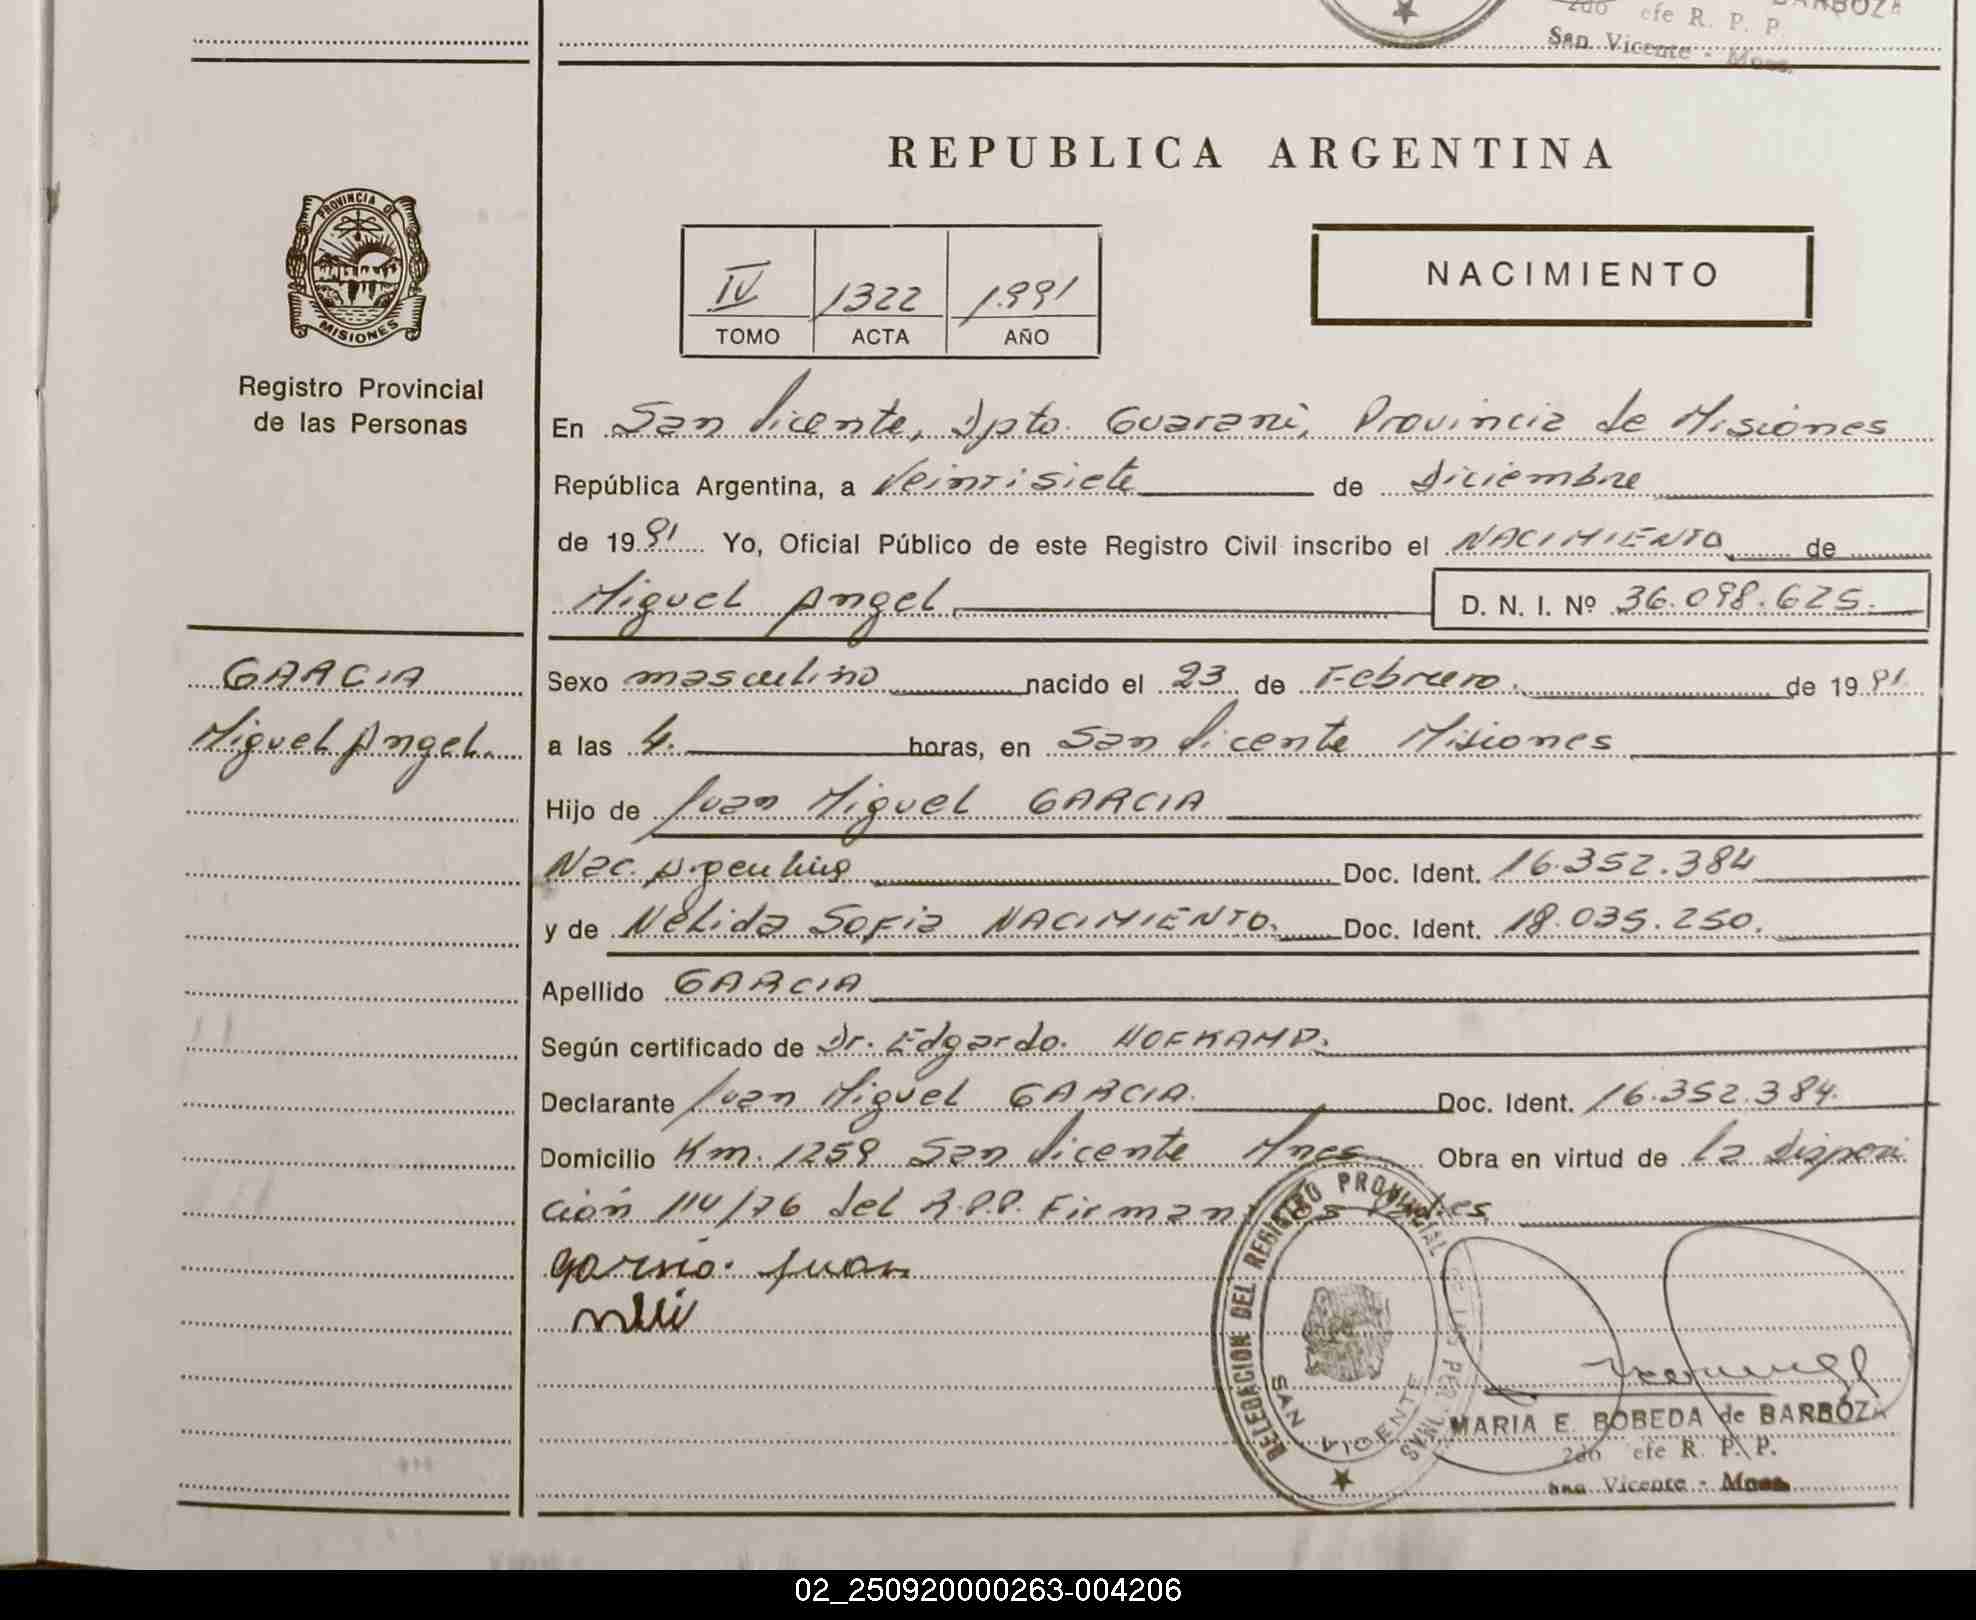 BARBOZA
2do efe R. P. P.
San Vicente - Mnes.
REPUBLICA ARGENTINA
PROVINCIA DE
MISIONES
Registro Provincial
de las Personas
IV 1322 1.991
TOMO ACTA AÑO
NACIMIENTO
En San Vicente, Dpto. Guarani, Provincia de Misiones
República Argentina, a Veintisiete de Diciembre
de 1991 Yo, Oficial Público de este Registro Civil inscribo el NACIMIENTO de
Miguel Angel D. N. I. Nº 36.098.625.
GARCIA
Miguel Angel.
Sexo masculino nacido el 23 de Febrero. de 1991
a las 4. horas, en San Vicente Misiones
Hijo de Juan Miguel GARCIA
Nac. Argentina Doc. Ident. 16.352.384
y de Nélida Sofia NACIMIENTO. Doc. Ident. 18.035.250.
Apellido GARCIA
Según certificado de Dr. Edgardo. HOFKAMP.
Declarante Juan Miguel GARCIA. Doc. Ident. 16.352.384.
Domicilio Km. 1259 San Vicente Mnes Obra en virtud de la disposi
ción 114/76 del R.P.P. Firman los Padres
garcia. juan
DELEGACION DEL REGISTRO PROVINCIAL DE LAS PERSONAS
SAN VICENTE
MARIA E. BOBEDA de BARBOZA
2do efe R. P. P.
San Vicente - Mnes.
02_250920000263-004206